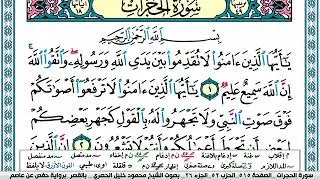 سُورَةُ الحُجُرَاتِ
بِسْمِ اللَّهِ الرَّحْمَٰنِ الرَّحِيمِ
يَٰٓأَيُّهَا الَّذِينَ ءَامَنُوا لَا تُقَدِّمُوا بَيْنَ يَدَيِ اللَّهِ وَرَسُولِهِۦ وَاتَّقُوا اللَّهَ
إِنَّ اللَّهَ سَمِيعٌ عَلِيمٌ ١ يَٰٓأَيُّهَا الَّذِينَ ءَامَنُوا لَا تَرْفَعُوٓا أَصْوَٰتَكُمْ
فَوْقَ صَوْتِ النَّبِيِّ وَلَا تَجْهَرُوا لَهُۥ بِالْقَوْلِ كَجَهْرِ بَعْضِكُمْ
سورة الحجرات الصفحة ٥١٥ الجزء ٢٦ الحزب ٥٢ بصوت الشيخ محمود خليل الحصري بالقصر برواية حفص عن عاصم